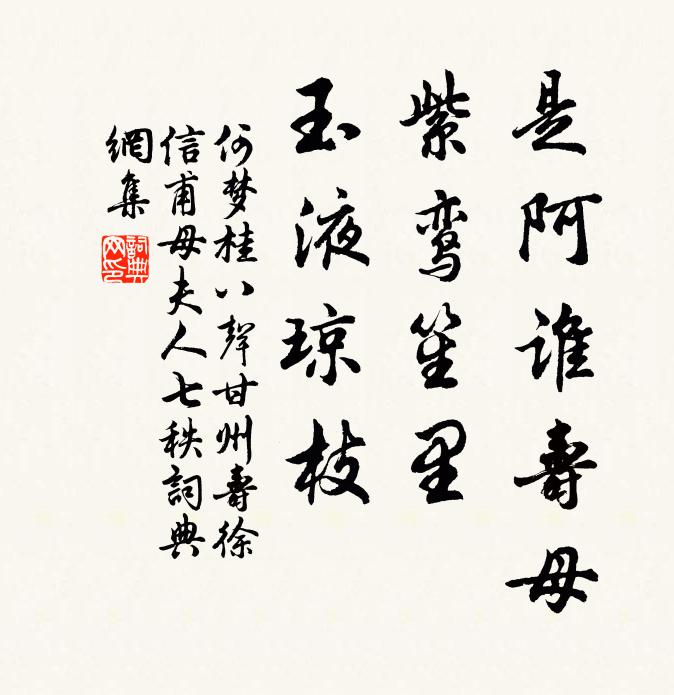 是阿谁壽母
紫鸾笙里
玉液琼枝
何梦桂八聲甘州壽徐
信甫母夫人七秩詞典
網集
詞典
网印